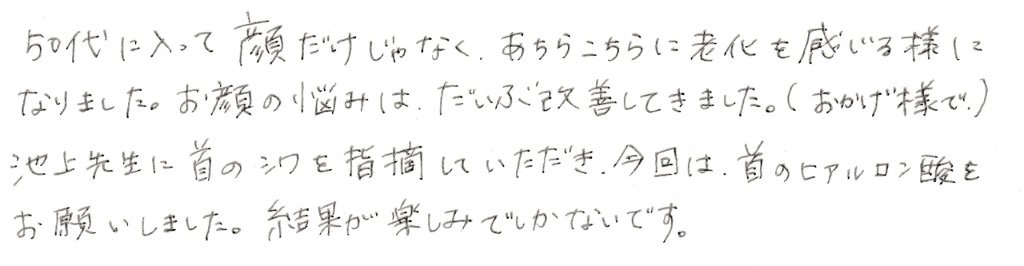 50代に入って顔だけじゃなく、あちらこちらに老化を感じる様に
なりました。お顔の悩みは、だいぶ改善してきました。(おかげ様で。)
池上先生に首のシワを指摘していただき、今回は、首のヒアルロン酸を
お願いしました。結果が楽しみでしかないです。